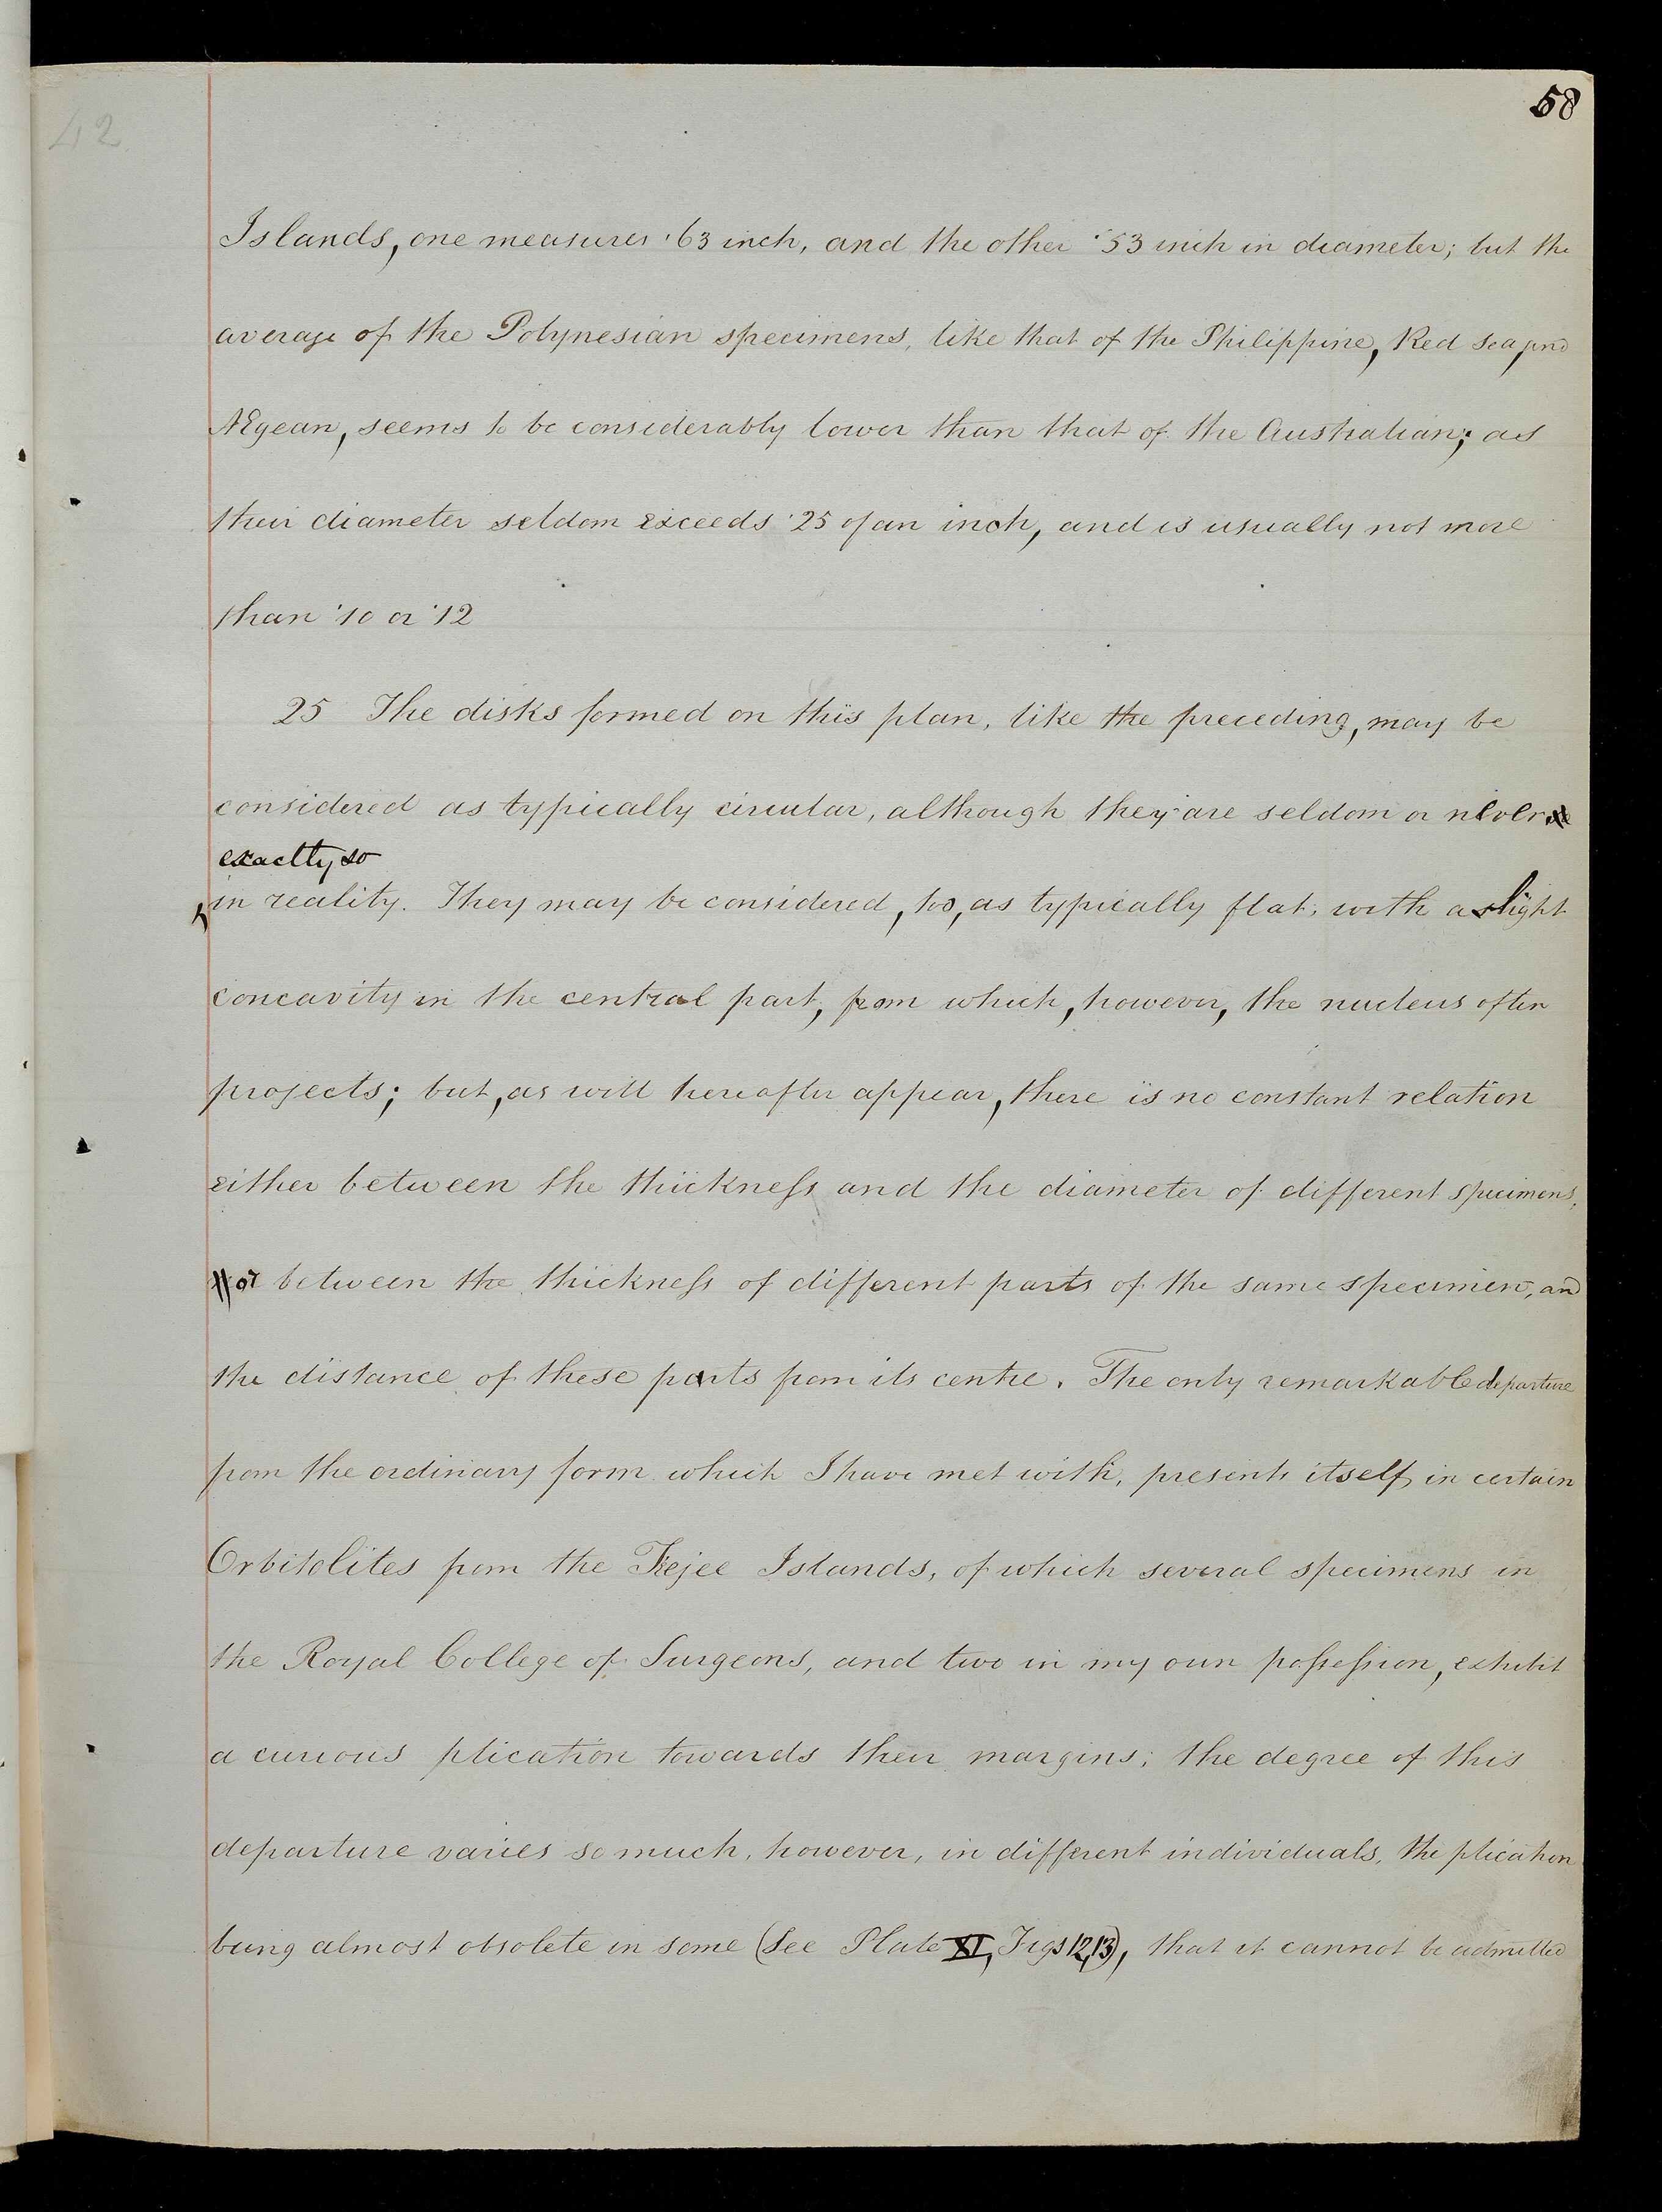 58
42
Islands, one measures ·63 inch, and the other ·53 inch in diameter; but the
average of the Polynesian specimens, like that of the Philippine, Red Sea, and
Ægean, seems to be considerably lower than that of the Australian; as
their diameter seldom exceeds ·25 of an inch, and is usually not more
than ·10 or ·12
25 The disks formed on this plan, like the preceding, may be
considered as typically circular, although they are seldom or never
exactly so
in reality. They may be considered, too, as typically flat, with a slight
concavity in the central part, from which, however, the nucleus often
projects; but, as will hereafter appear, there is no constant relation
either between the thickneſs and the diameter of different specimens,
or between the thickneſs of different parts of the same specimen, and
the distance of these parts from its centre. The only remarkable departure
from the ordinary form which I have met with, presents itself in certain
Orbitolites from the Fejee Islands, of which several specimens in
the Royal College of Surgeons, and two in my own poſseſsion, exhibit
a curious plication towards their margins; the degree of this
departure varies so much, however, in different individuals, the plication
being almost obsolete in some (See Plate XI, Figs 12, 13), that it cannot be admitted